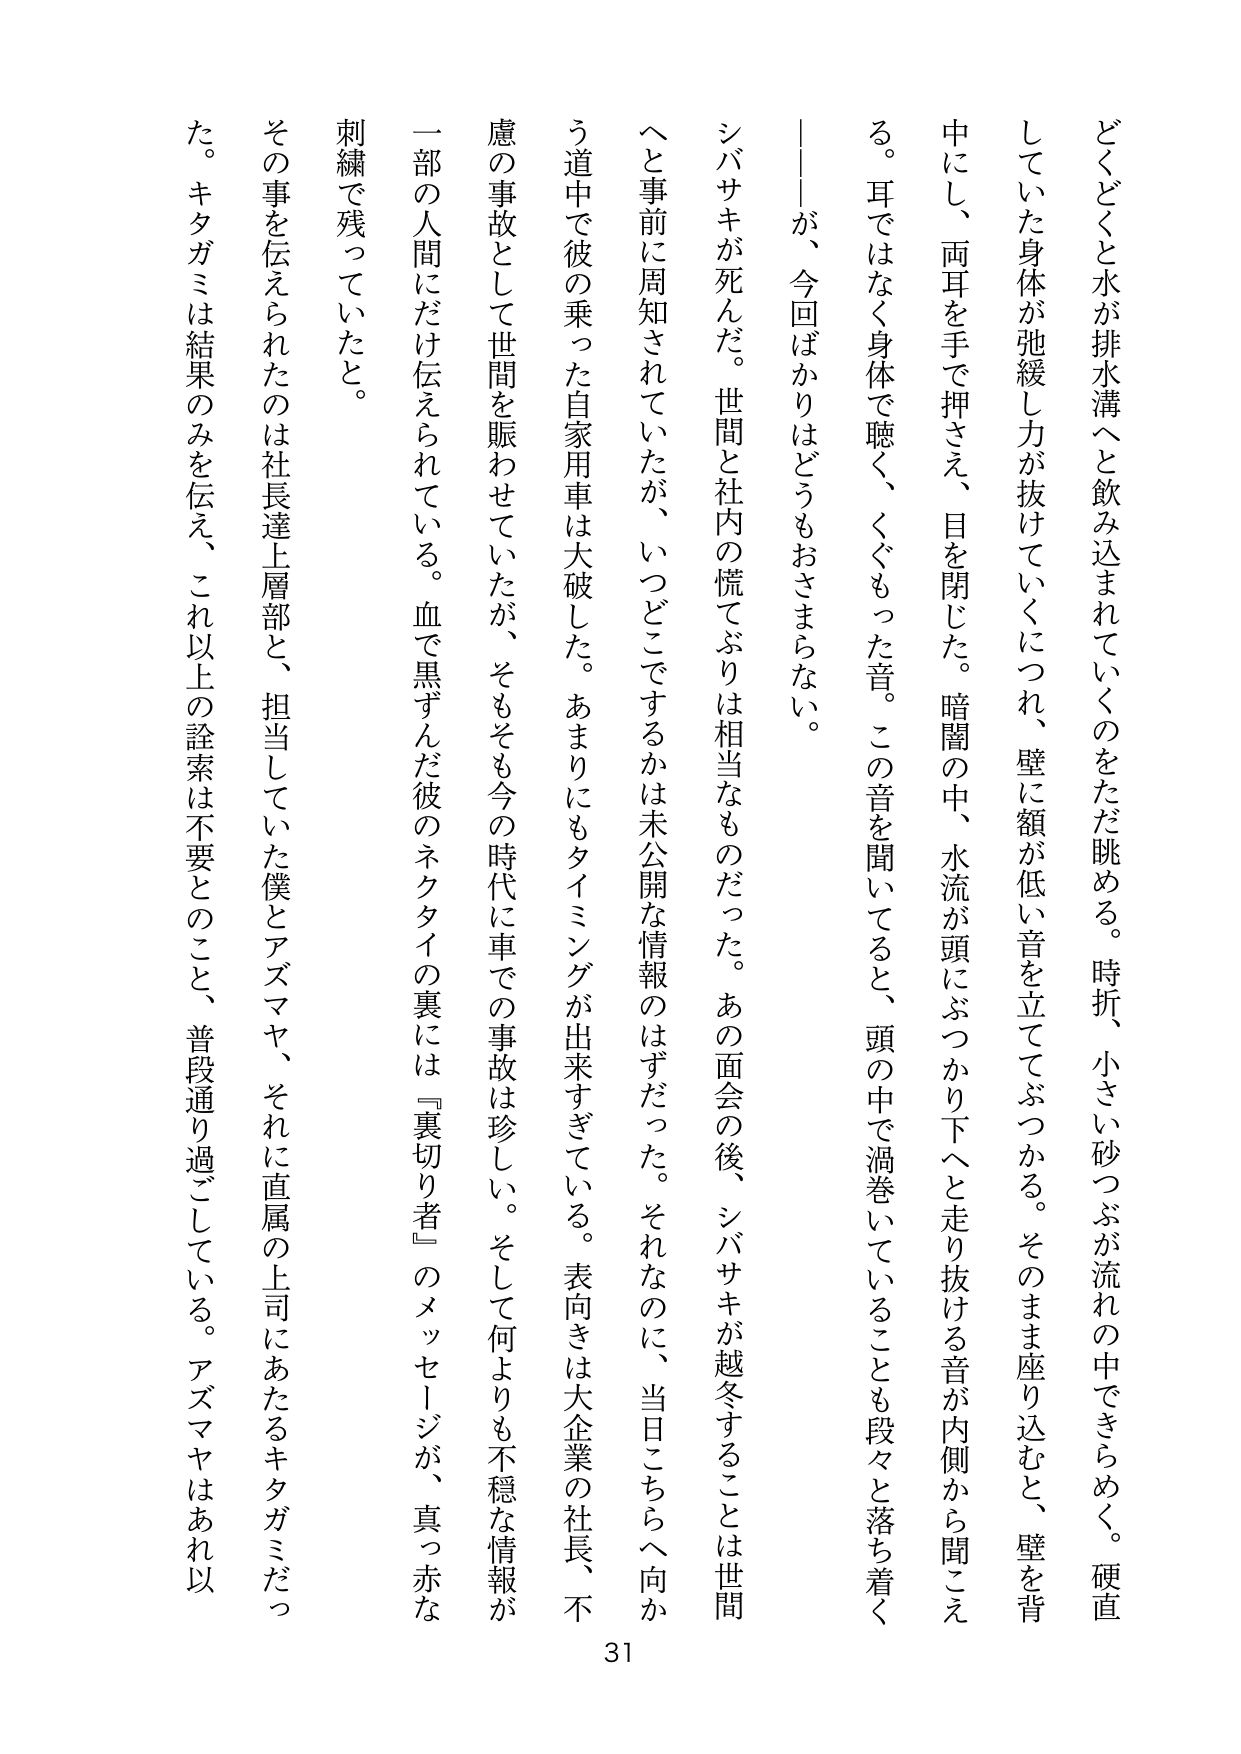 どくどくと水が排水溝へと飲み込まれていくのをただ眺める。時折、小さい砂つぶが流れの中できらめく。硬直
していた身体が弛緩し力が抜けていくにつれ、壁に額が低い音を立ててぶつかる。そのまま座り込むと、壁を背
中にし、両耳を手で押さえ、目を閉じた。暗闇の中、水流が頭にぶつかり下へと走り抜ける音が内側から聞こえ
る。耳ではなく身体で聴く、くぐもった音。この音を聞いてると、頭の中で渦巻いていることも段々と落ち着く
―――が、今回ばかりはどうもおさまらない。
シバサキが死んだ。世間と社内の慌てぶりは相当なものだった。あの面会の後、シバサキが越冬することは世間
へと事前に周知されていたが、いつどこでするかは未公開な情報のはずだった。それなのに、当日こちらへ向か
う道中で彼の乗った自家用車は大破した。あまりにもタイミングが出来すぎている。表向きは大企業の社長、不
慮の事故として世間を賑わせていたが、そもそも今の時代に車での事故は珍しい。そして何よりも不穏な情報が
一部の人間にだけ伝えられている。血で黒ずんだ彼のネクタイの裏には『裏切り者』のメッセージが、真っ赤な
刺繍で残っていたと。
その事を伝えられたのは社長達上層部と、担当していた僕とアズマヤ、それに直属の上司にあたるキタガミだっ
た。キタガミは結果のみを伝え、これ以上の詮索は不要とのこと、普段通り過ごしている。アズマヤはあれ以
31